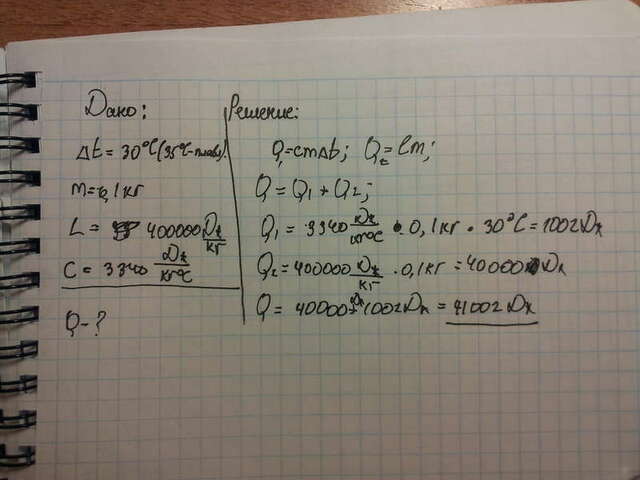 Дано:
Δt = 30°C (35°C-плавл.)
m = 0,1 кг
L = 400000 Дж/кг
C = 3340 Дж/кг°C
Q - ?
Решение:
Q₁ = cmΔt; Q₂ = Lm;
Q = Q₁ + Q₂;
Q₁ = 3340 Дж/кг°C · 0,1 кг · 30°C = 1002 Дж
Q₂ = 400000 Дж/кг · 0,1 кг = 40000 Дж
Q = 40000 Дж + 1002 Дж = 41002 Дж